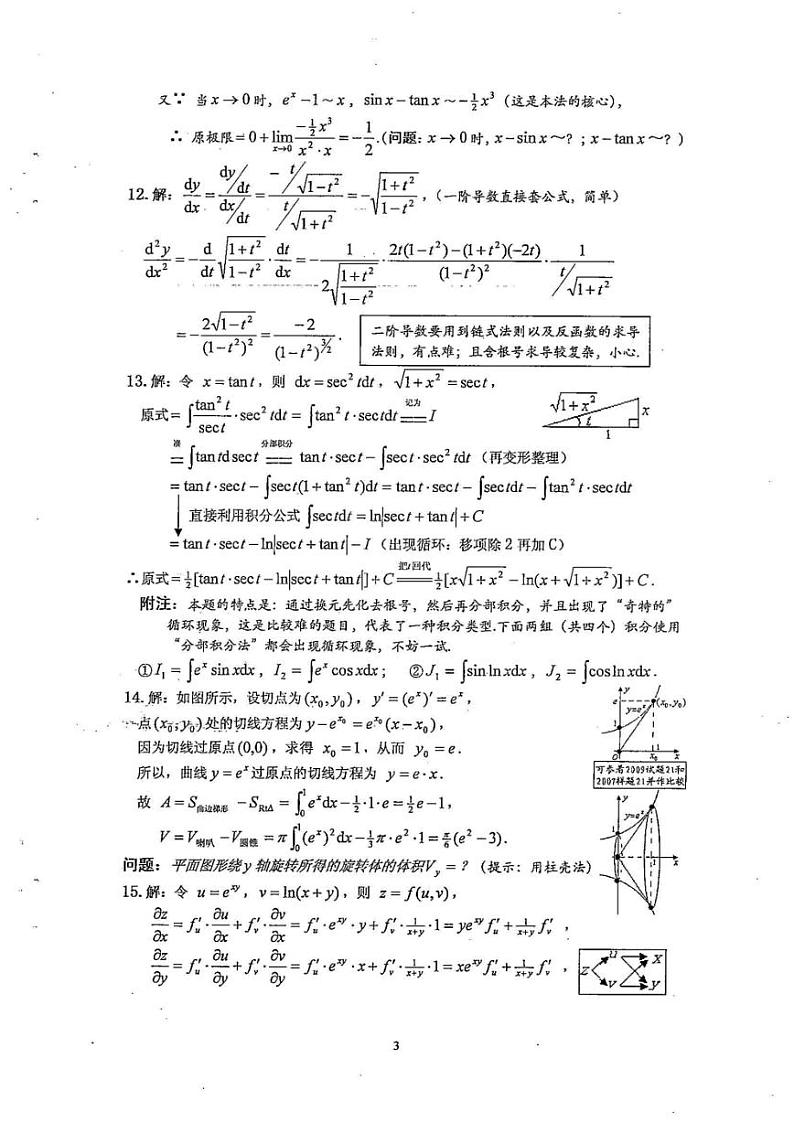 又∵ 当 x→0 时, e^x −1 ~ x, sin x − tan x ~ −½x³ (这是本法的核心),
∴ 原极限 = 0 + lim_{x→0} (−½x³)/(x²·x) = −1/2.(问题: x→0 时, x − sin x ~? ; x − tan x ~? )
12. 解: dy/dx = (dy/dt)/(dx/dt) = (−t/√(1−t²))/(t/√(1+t²)) = −√((1+t²)/(1−t²)), (一阶导数直接套公式, 简单)
d²y/dx² = −d/dt √((1+t²)/(1−t²)) · dt/dx = −1/(2√((1+t²)/(1−t²))) · (2t(1−t²)−(1+t²)(−2t))/(1−t²)² · 1/(t/√(1+t²))
= −2√(1−t²)/(1−t²)² = −2/(1−t²)^{3/2}.
二阶导数要用到链式法则以及反函数的求导
法则, 有点难; 且含根号求导较复杂, 小心.
13. 解: 令 x = tan t, 则 dx = sec² t dt, √(1+x²) = sec t,
原式 = ∫ (tan² t / sec t) · sec² t dt = ∫ tan² t · sec t dt 记为 = I
√(1+x²) x t 1
凑 = ∫ tan t d sec t 分部积分 = tan t · sec t − ∫ sec t · sec² t dt (再变形整理)
= tan t · sec t − ∫ sec t(1 + tan² t)dt = tan t · sec t − ∫ sec t dt − ∫ tan² t · sec t dt
直接利用积分公式 ∫ sec t dt = ln|sec t + tan t| + C
= tan t · sec t − ln|sec t + tan t| − I (出现循环: 移项除 2 再加 C)
∴ 原式 = ½[tan t · sec t − ln|sec t + tan t|] + C 把t回代 = ½[x√(1+x²) − ln(x + √(1+x²))] + C.
附注: 本题的特点是: 通过换元先化去根号, 然后再分部积分, 并且出现了 “奇特的”
循环现象, 这是比较难的题目, 代表了一种积分类型.下面两组 (共四个) 积分使用
“分部积分法” 都会出现循环现象, 不妨一试.
① I₁ = ∫ e^x sin x dx, I₂ = ∫ e^x cos x dx; ② J₁ = ∫ sin ln x dx, J₂ = ∫ cos ln x dx.
14. 解: 如图所示, 设切点为 (x₀, y₀), y′ = (e^x)′ = e^x,
点 (x₀, y₀) 处的切线方程为 y − e^{x₀} = e^{x₀}(x − x₀),
因为切线过原点 (0,0), 求得 x₀ = 1, 从而 y₀ = e.
所以, 曲线 y = e^x 过原点的切线方程为 y = e · x.
y e y=e^x (x₀,y₀) 1 0 1 x₀ x
可参看2009试题21和
2007样题21并作比较
故 A = S曲边梯形 − S_{RtΔ} = ∫₀¹ e^x dx − ½ · 1 · e = ½e − 1,
V = V喇叭 − V圆锥 = π∫₀¹ (e^x)² dx − ⅓π · e² · 1 = π/6 (e² − 3).
y y=e^x 1 1 x
问题: 平面图形绕 y 轴旋转所得的旋转体的体积 V_y = ? (提示: 用柱壳法)
15. 解: 令 u = e^{xy}, v = ln(x + y), 则 z = f(u, v),
∂z/∂x = f′_u · ∂u/∂x + f′_v · ∂v/∂x = f′_u · e^{xy} · y + f′_v · 1/(x+y) · 1 = ye^{xy} f′_u + 1/(x+y) f′_v ,
∂z/∂y = f′_u · ∂u/∂y + f′_v · ∂v/∂y = f′_u · e^{xy} · x + f′_v · 1/(x+y) · 1 = xe^{xy} f′_u + 1/(x+y) f′_v ,
z u x v y
3